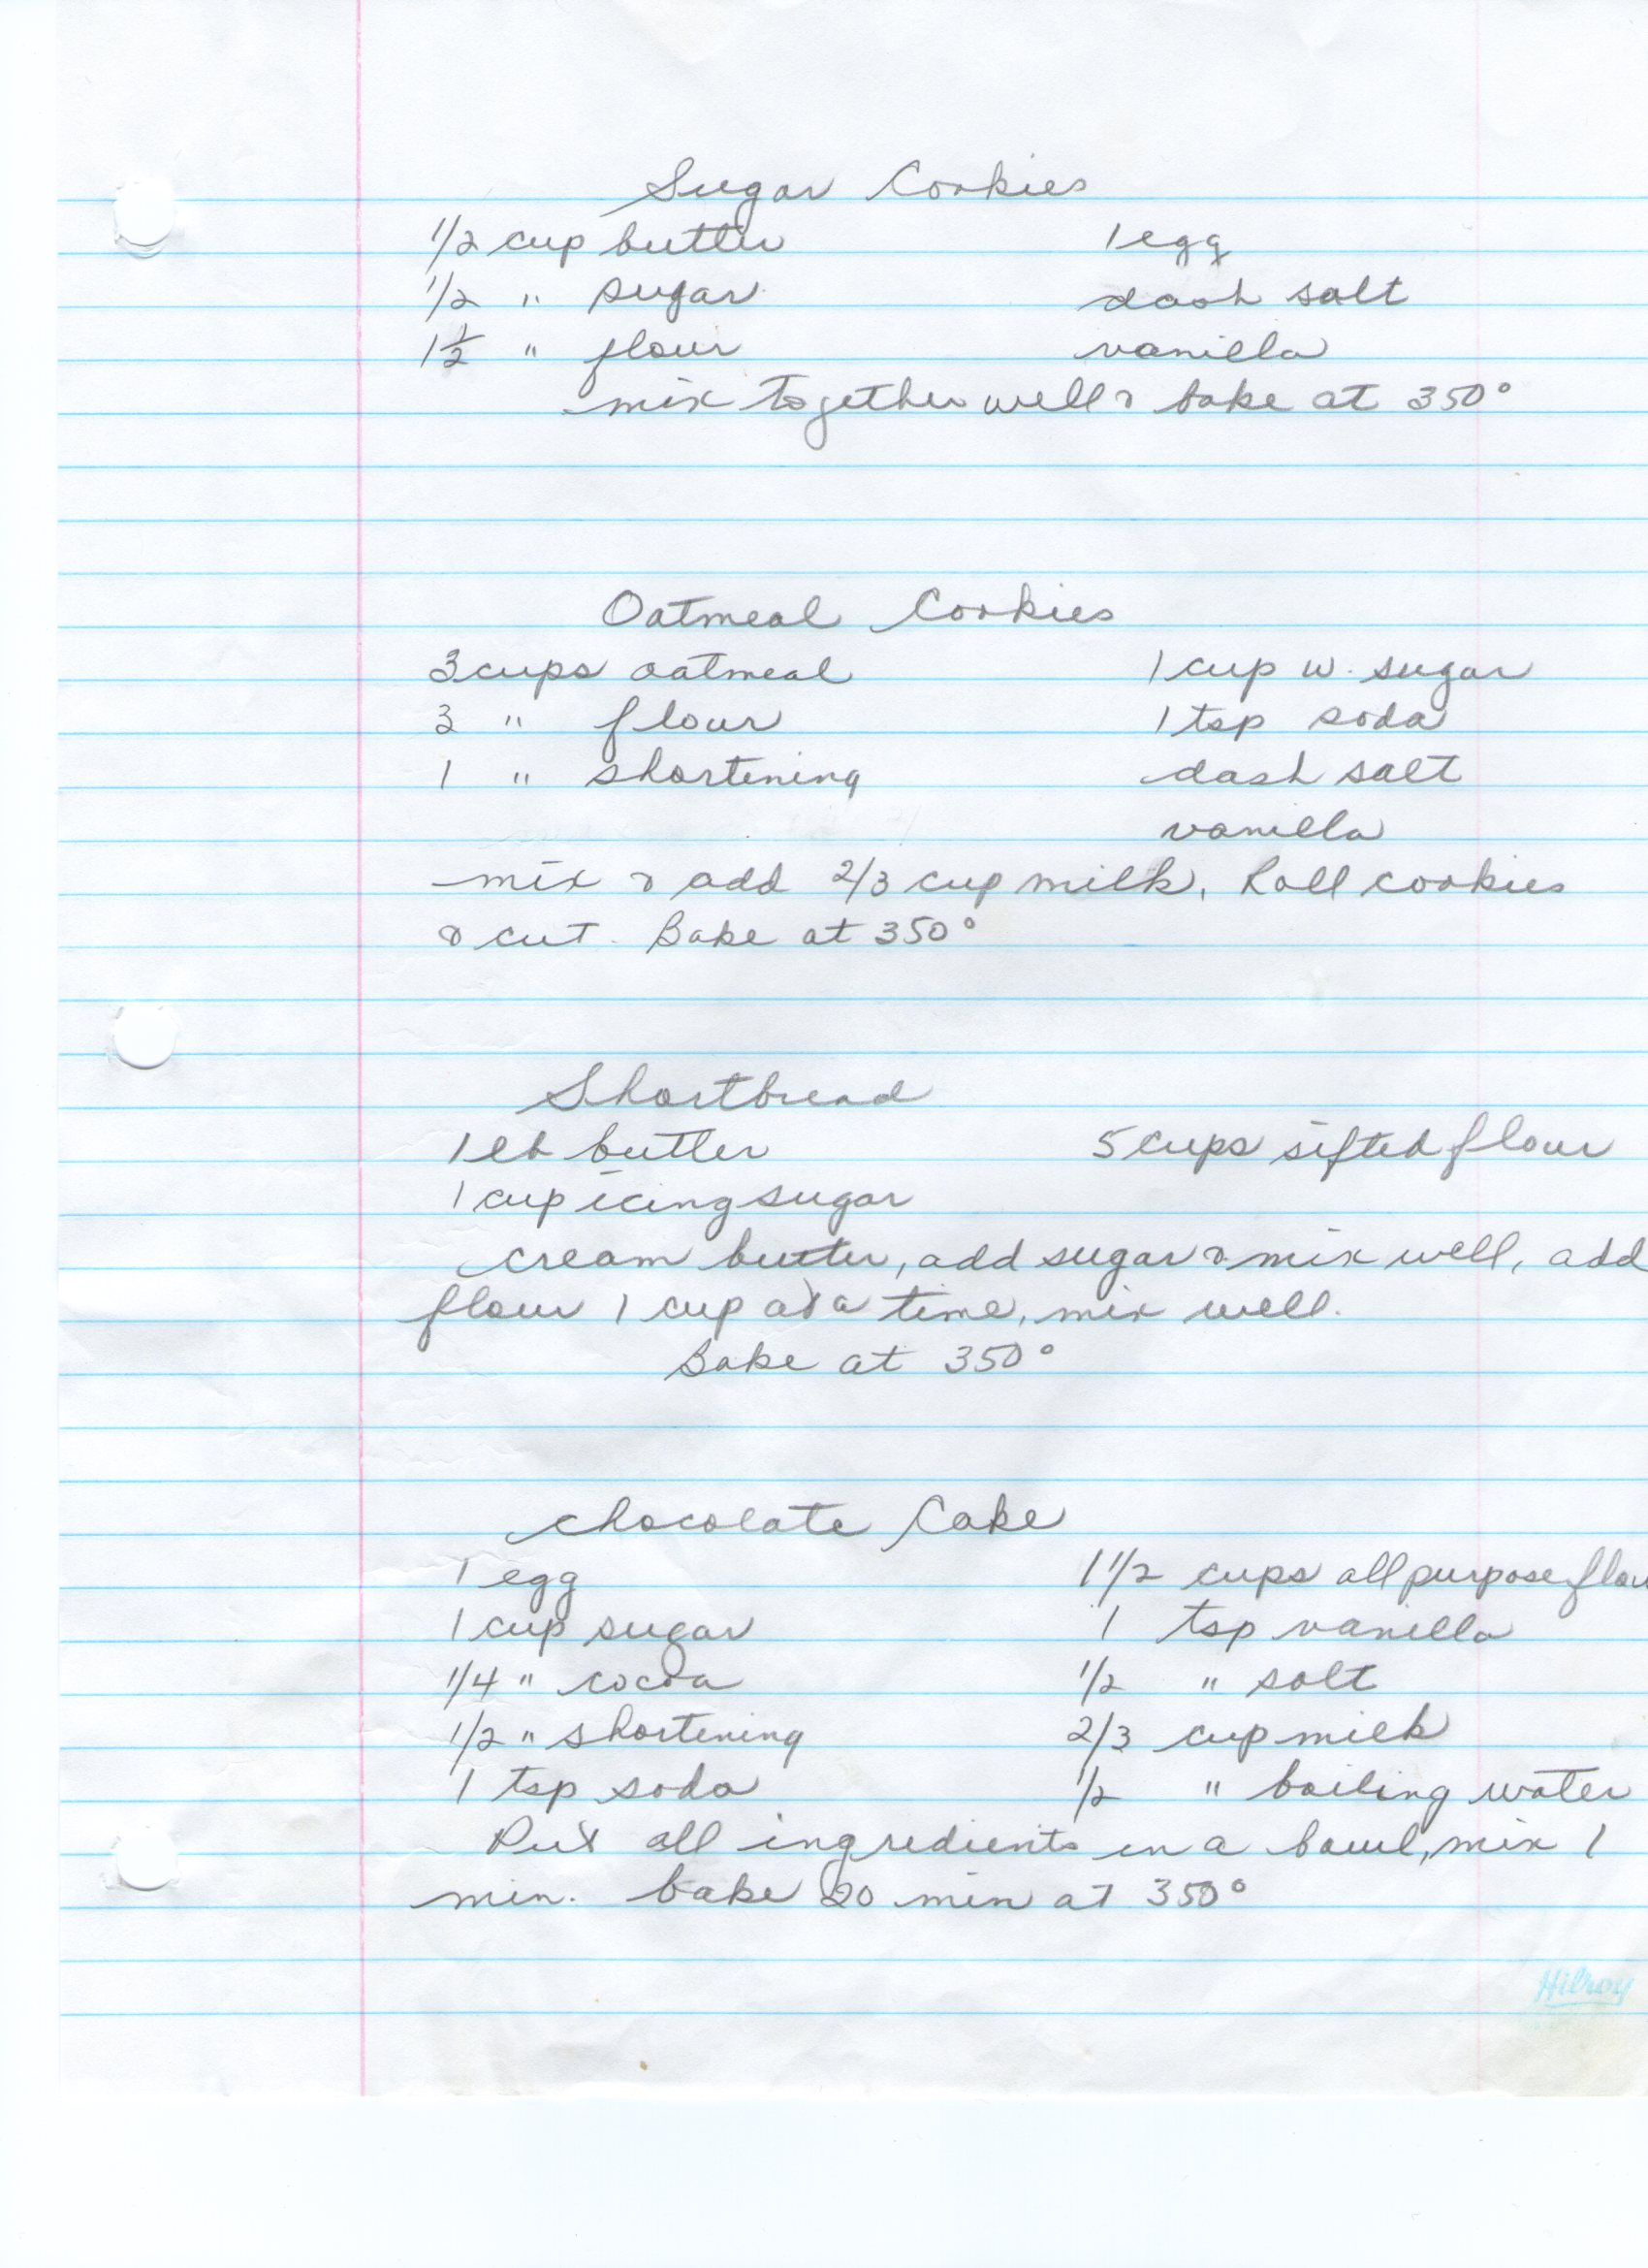 Sugar Cookies
1/2 cup butter 1 egg
1/2 " sugar dash salt
1 1/2 " flour vanilla
mix together well & bake at 350°
Oatmeal Cookies
3 cups oatmeal 1 cup w. sugar
3 " flour 1 tsp soda
1 " shortening dash salt
vanilla
mix & add 2/3 cup milk. Roll cookies
& cut. Bake at 350°
Shortbread
1 lb butter 5 cups sifted flour
1 cup icing sugar
cream butter, add sugar & mix well, add
flour 1 cup at a time, mix well.
Bake at 350°
Chocolate Cake
1 egg 1 1/2 cups all purpose flou
1 cup sugar 1 tsp vanilla
1/4 " cocoa 1/2 " salt
1/2 " shortening 2/3 cup milk
1 tsp soda 1/2 " boiling water
Put all ingredients in a bowl, mix 1
min. bake 20 min at 350°
Hilroy